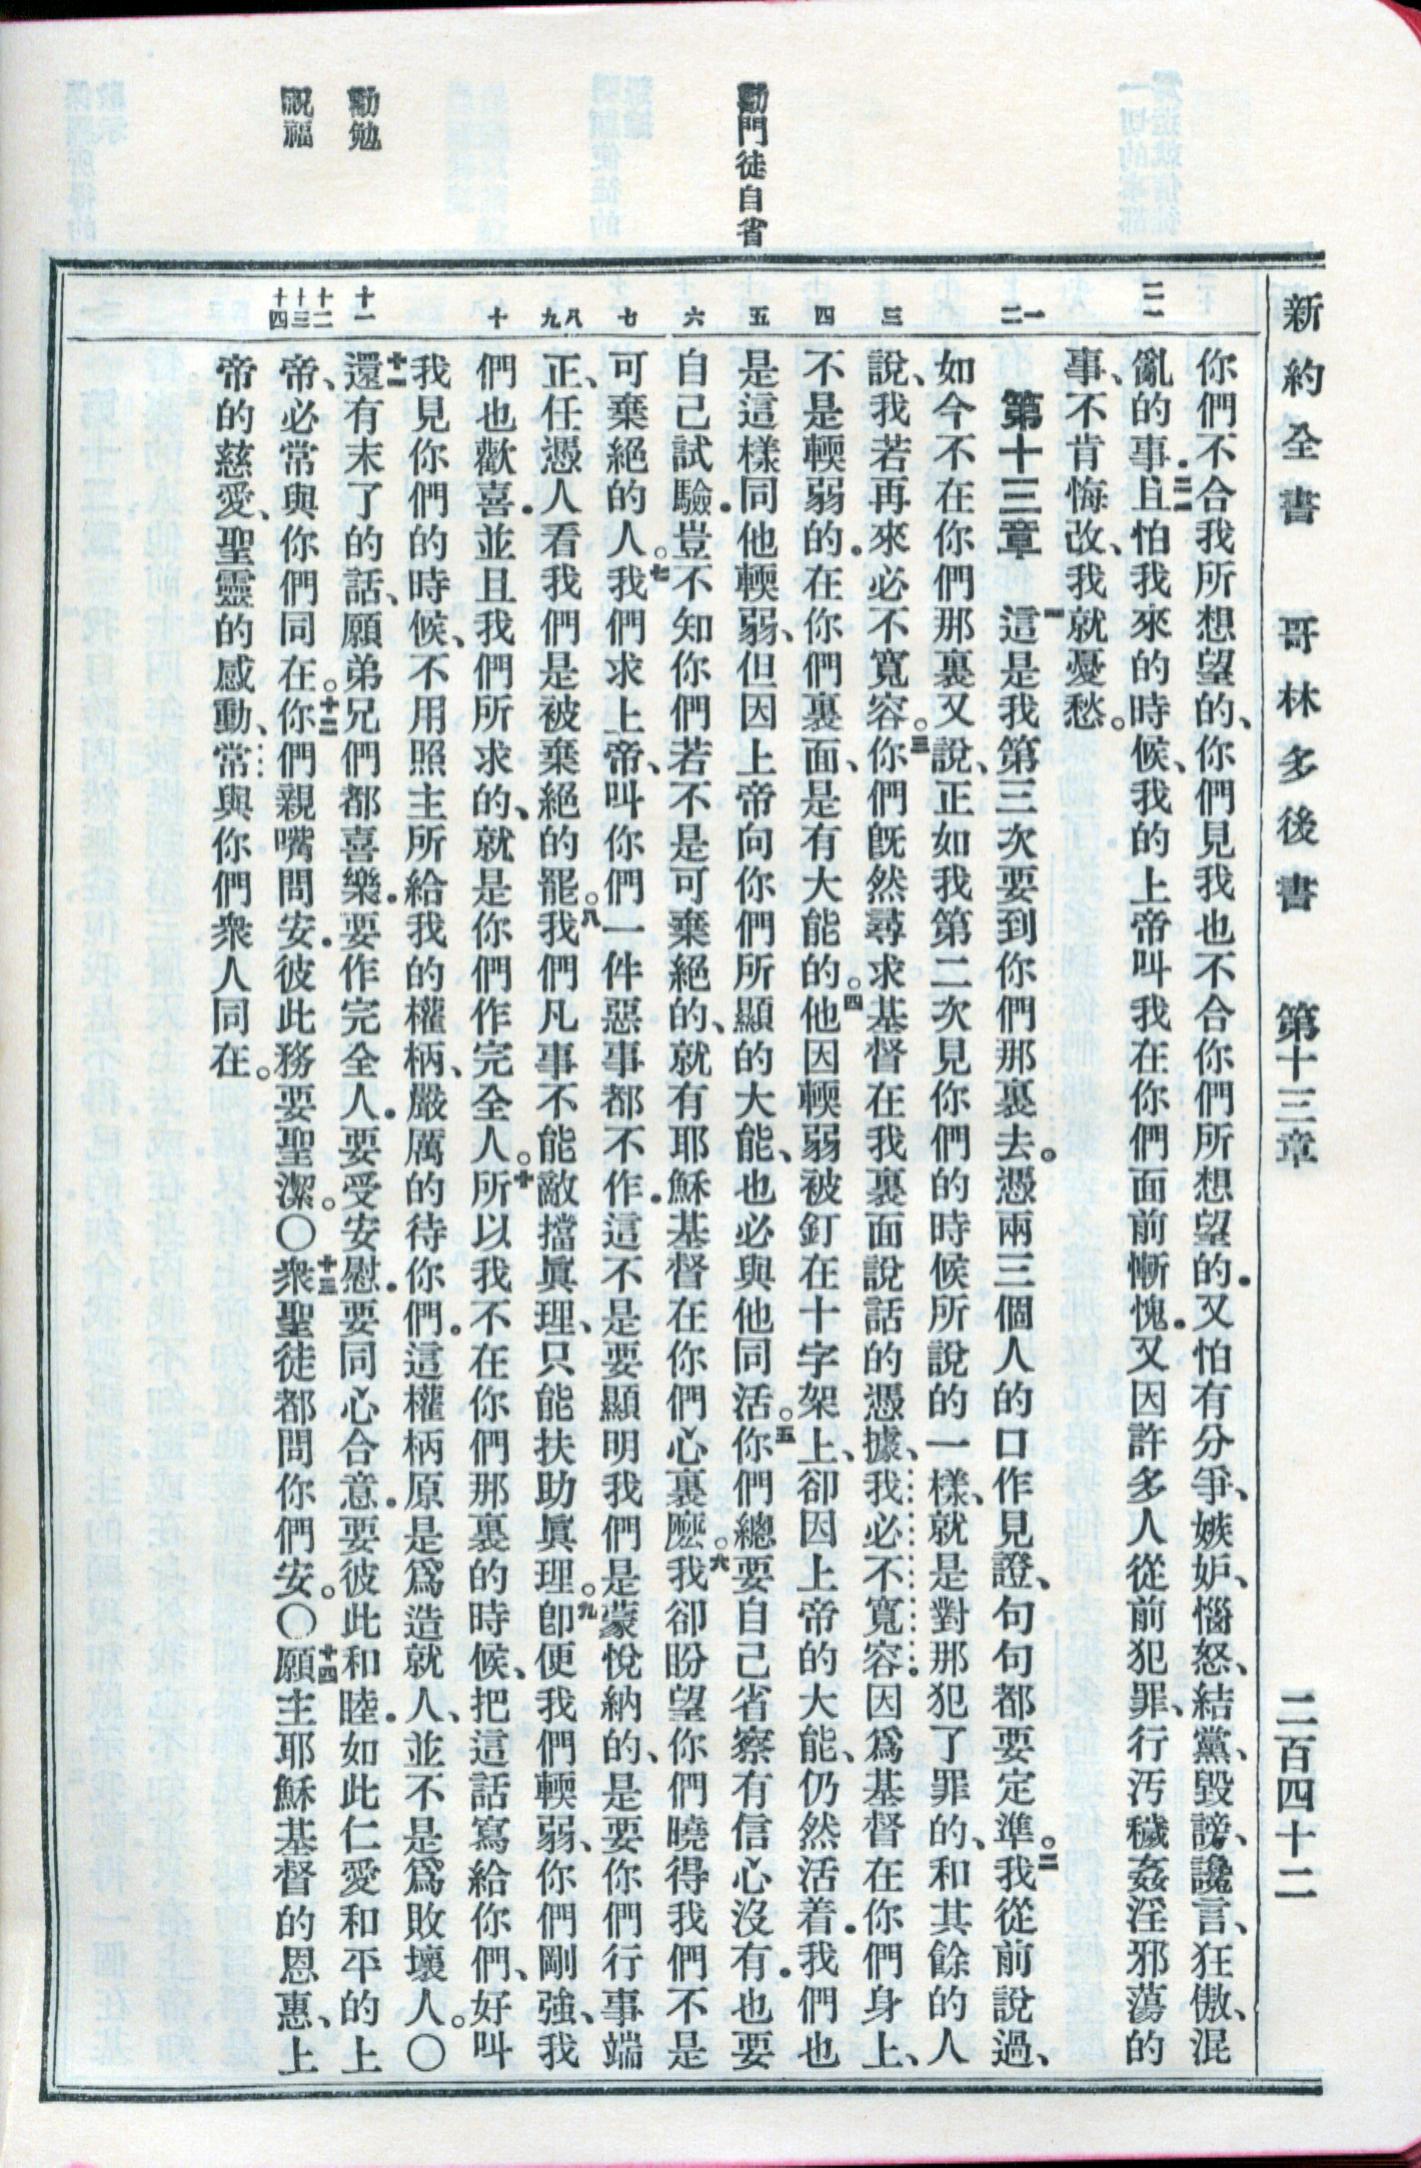 新約全書　哥林多後書　第十三章　二百四十二
勸門徒自省
勸勉
祝福
二一
一二
三
四
五
六
七
八九
十
十一
十二十三十四
你們不合我所想望的、你們見我也不合你們所想望的．又怕有分爭、嫉妒、惱怒、結黨、毀謗、讒言、狂傲、混
亂的事．二一且怕我來的時候、我的上帝叫我在你們面前慚愧．又因許多人從前犯罪、行汚穢姦淫邪蕩的
事、不肯悔改、我就憂愁。
第十三章　一這是我第三次要到你們那裏去。憑兩三個人的口作見證、句句都要定準。二我從前說過、
如今不在你們那裏又說、正如我第二次見你們的時候所說的一樣、就是對那犯了罪的、和其餘的人
說、我若再來必不寬容。三你們旣然尋求基督在我裏面說話的憑據、我必不寬容．因爲基督在你們身上、
不是輭弱的．在你們裏面、是有大能的。四他因輭弱被釘在十字架上、卻因上帝的大能、仍然活着．我們也
是這樣同他輭弱、但因上帝向你們所顯的大能、也必與他同活。五你們總要自己省察有信心沒有．也要
自己試驗．豈不知你們若不是可棄絕的、就有耶穌基督在你們心裏麽。六我卻盼望你們曉得我們不是
可棄絕的人。七我們求上帝、叫你們一件惡事都不作．這不是要顯明我們是蒙悅納的、是要你們行事端
正、任憑人看我們是被棄絕的罷。八我們凡事不能敵擋眞理、只能扶助眞理。九卽便我們輭弱、你們剛強、我
們也歡喜．並且我們所求的、就是你們作完全人。十所以我不在你們那裏的時候、把這話寫給你們、好叫
我見你們的時候、不用照主所給我的權柄、嚴厲的待你們．這權柄原是爲造就人、並不是爲敗壞人。〇
十一還有末了的話、願弟兄們都喜樂．要作完全人．要受安慰．要同心合意．要彼此和睦．如此仁愛和平的上
帝、必常與你們同在。十二你們親嘴問安．彼此務要聖潔。〇十三衆聖徒都問你們安。〇十四願主耶穌基督的恩惠、上
帝的慈愛、聖靈的感動、常與你們衆人同在。